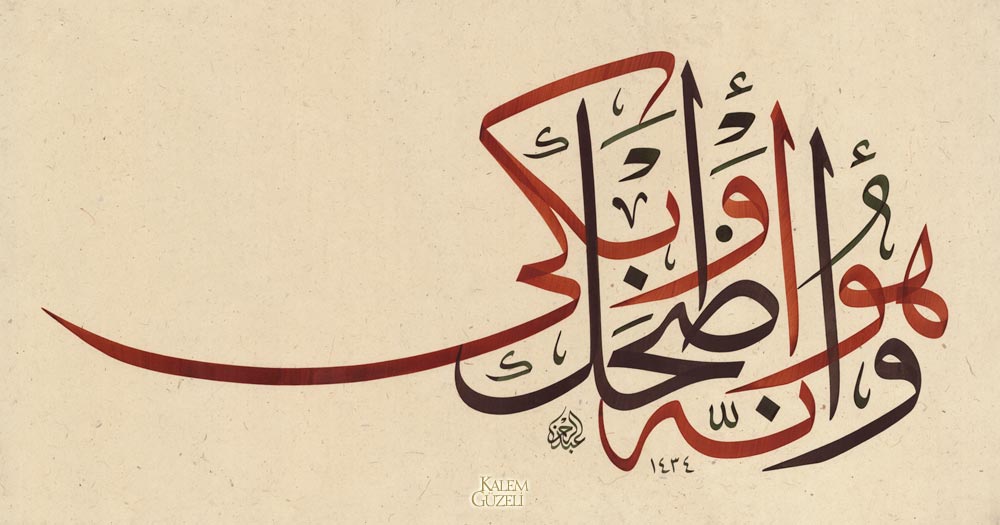 وأنه هو أضحك وأبكى
عبدالرحمن
١٤٣٤
KALEM
GÜZELİ